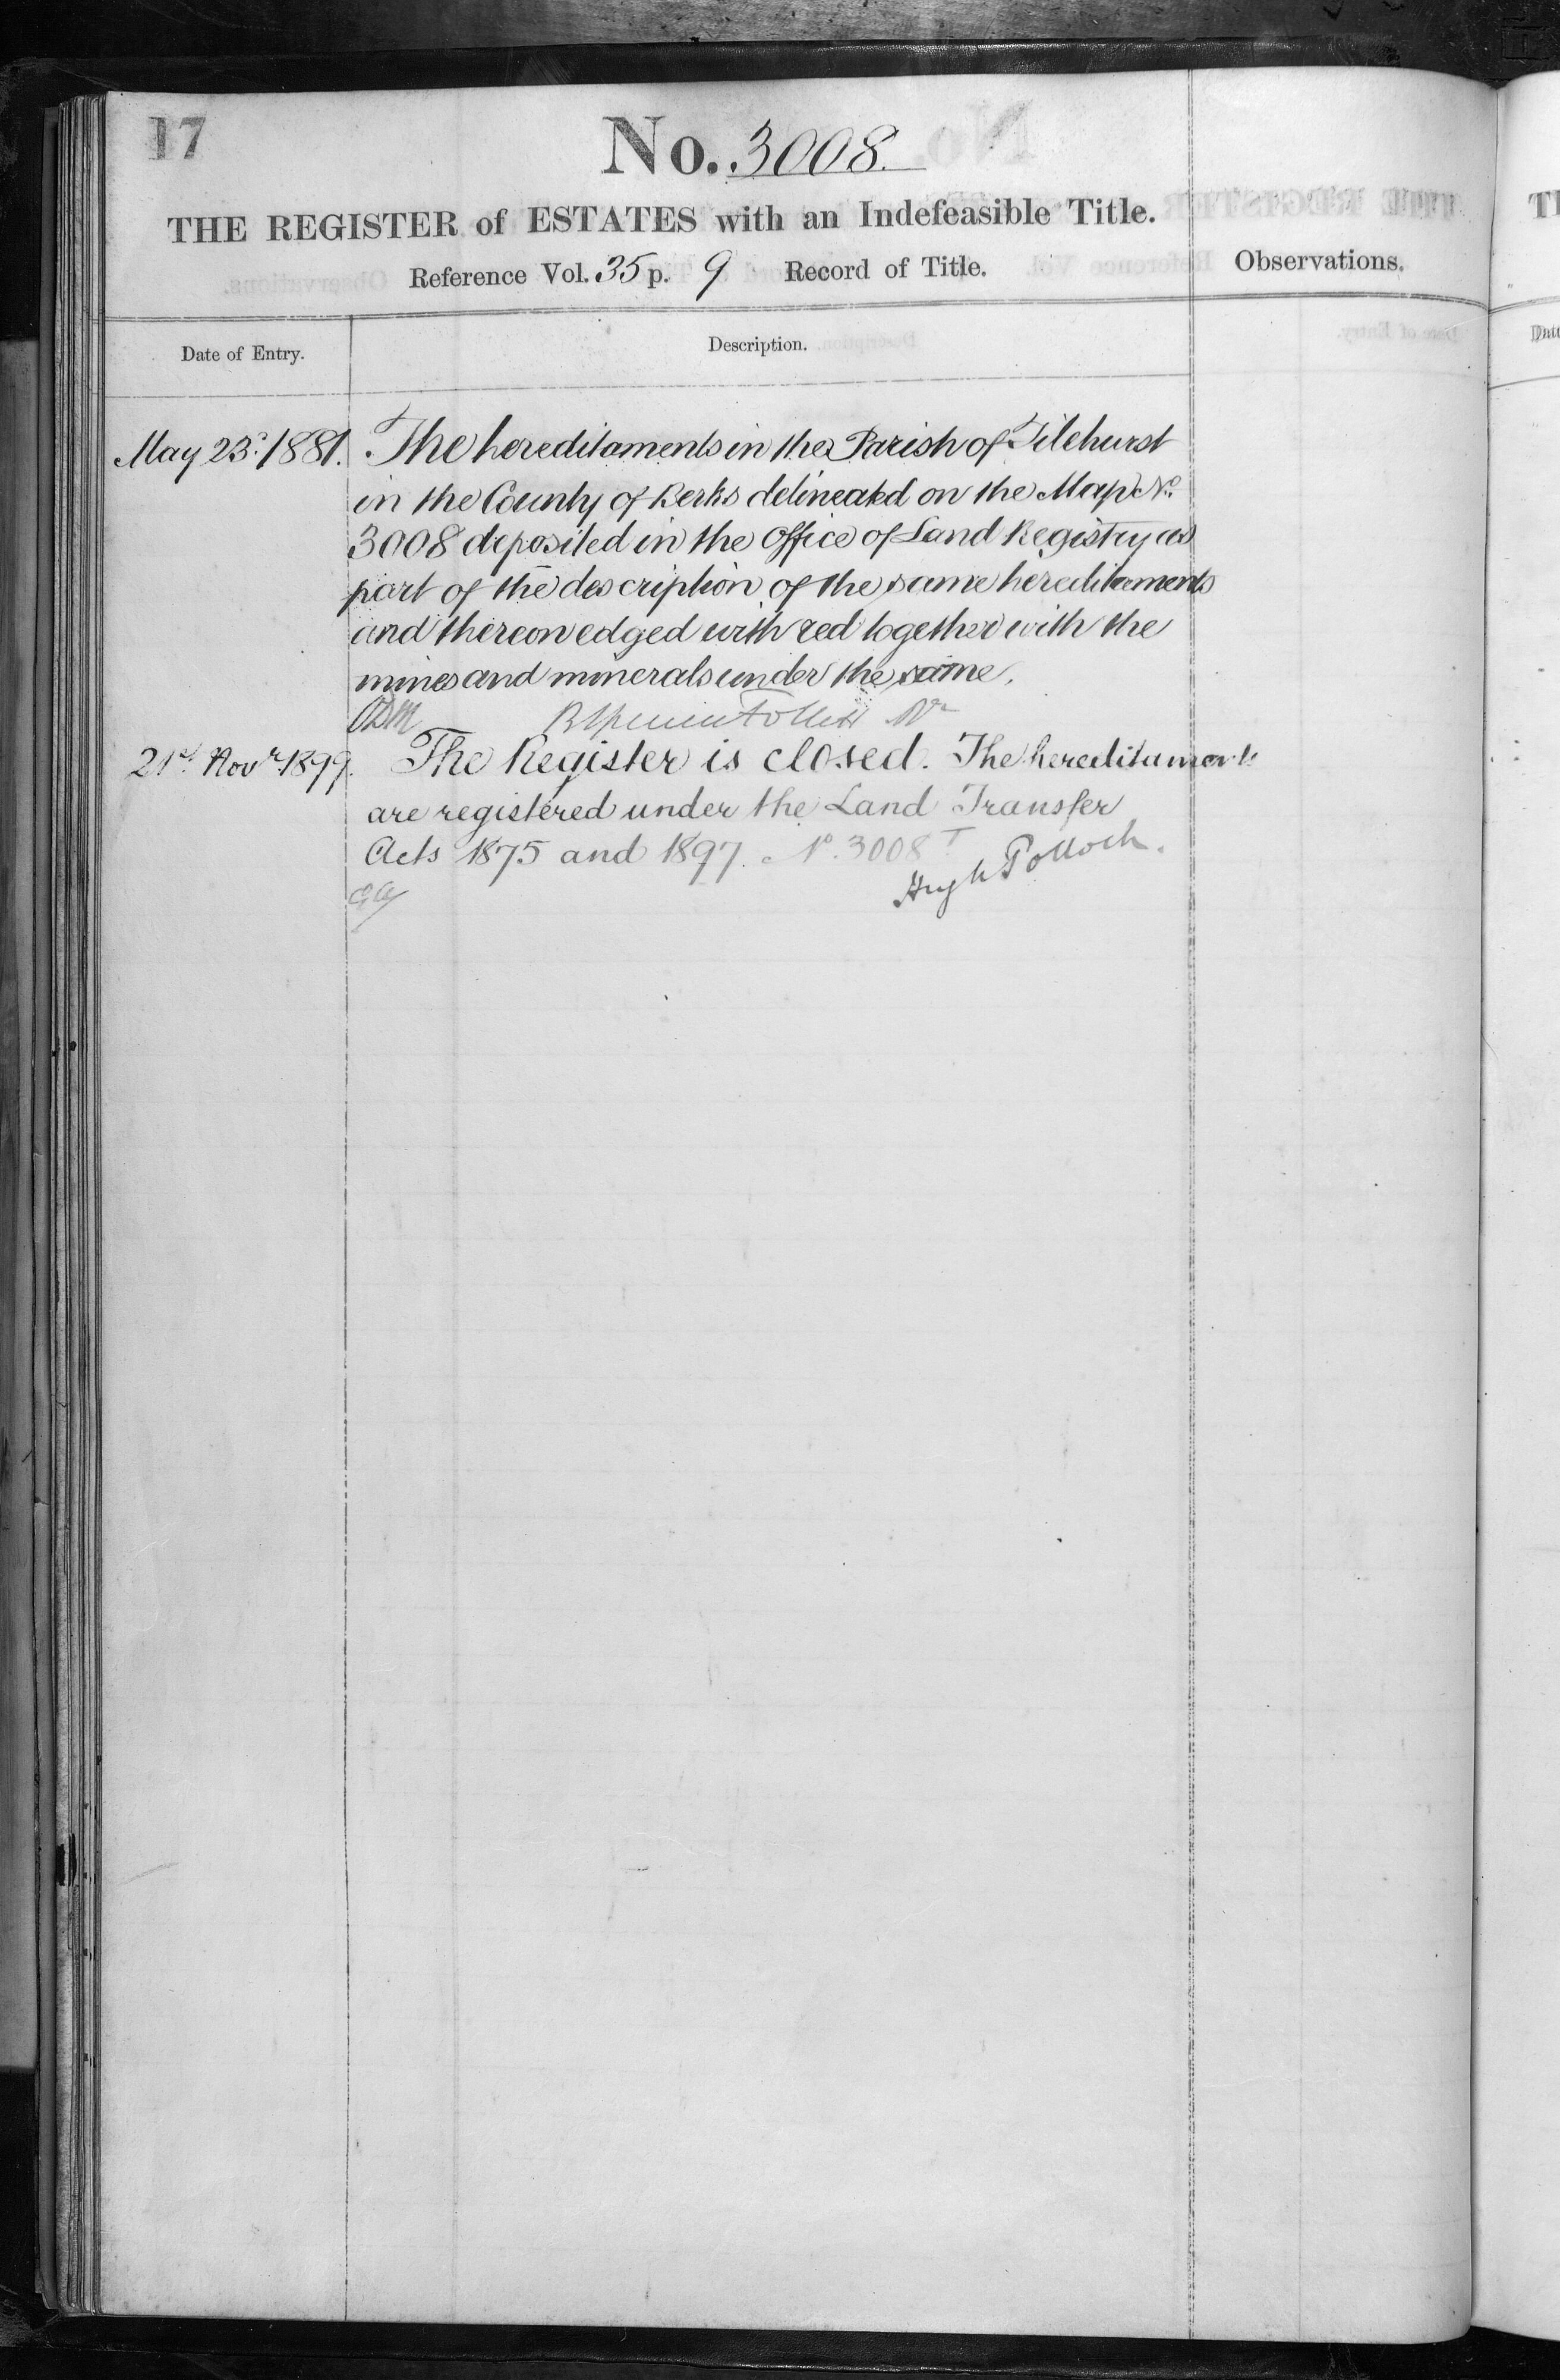 17
No. 3008.
THE REGISTER of ESTATES with an Indefeasible Title.
Reference Vol. 35 p. 9 Record of Title.
Observations.
Date of Entry.
Description.
May 23.d 1881. The hereditaments in the Parish of Tilehurst
in the County of Berks delineated on the Map No.
3008 deposited in the Office of Land Registry as
part of the description of the same hereditaments
and thereon edged with red together with the
mines and minerals under the same.
21st Novr 1899. The Register is closed. The hereditaments
are registered under the Land Transfer
Acts 1875 and 1897. No. 3008 T
Hugh Pollock.